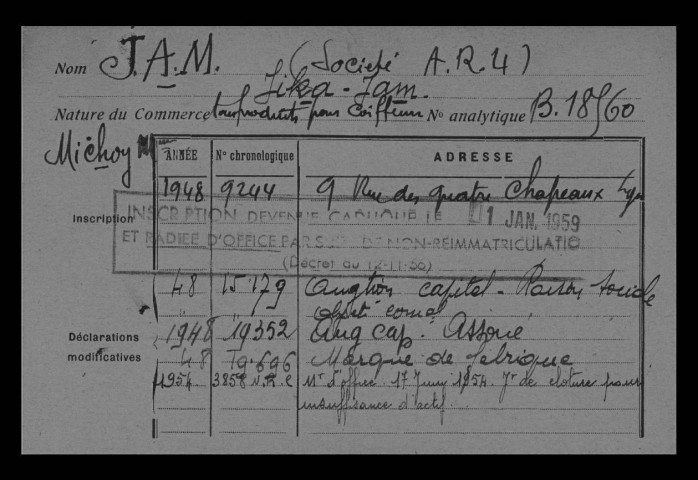 Nom J.A.M. (Société A.R.4)
Jika-Jam.
Nature du Commerce tous produits pour Coiffeurs No analytique B.18560
Michoy
ANNÉE No chronologique ADRESSE
1948 9244 9 Rue des quatre Chapeaux Lyon
Inscription
INSCRIPTION DEVENUE CADUQUE LE 1 JAN. 1959
ET RADIEE D'OFFICE PAR SUITE DE NON-REIMMATRICULATIO
(Décret du 12-11-56)
48 15179 Augtion capital - Raison Sociale
objet comal
Déclarations modificatives
1948 19352 Aug cap. Associé
48 19.696 Marque de fabrique
1954 3858 N.R.C Mon d'office 17 Juny 1954. Jt de cloture pour
insuffisance d'actif.